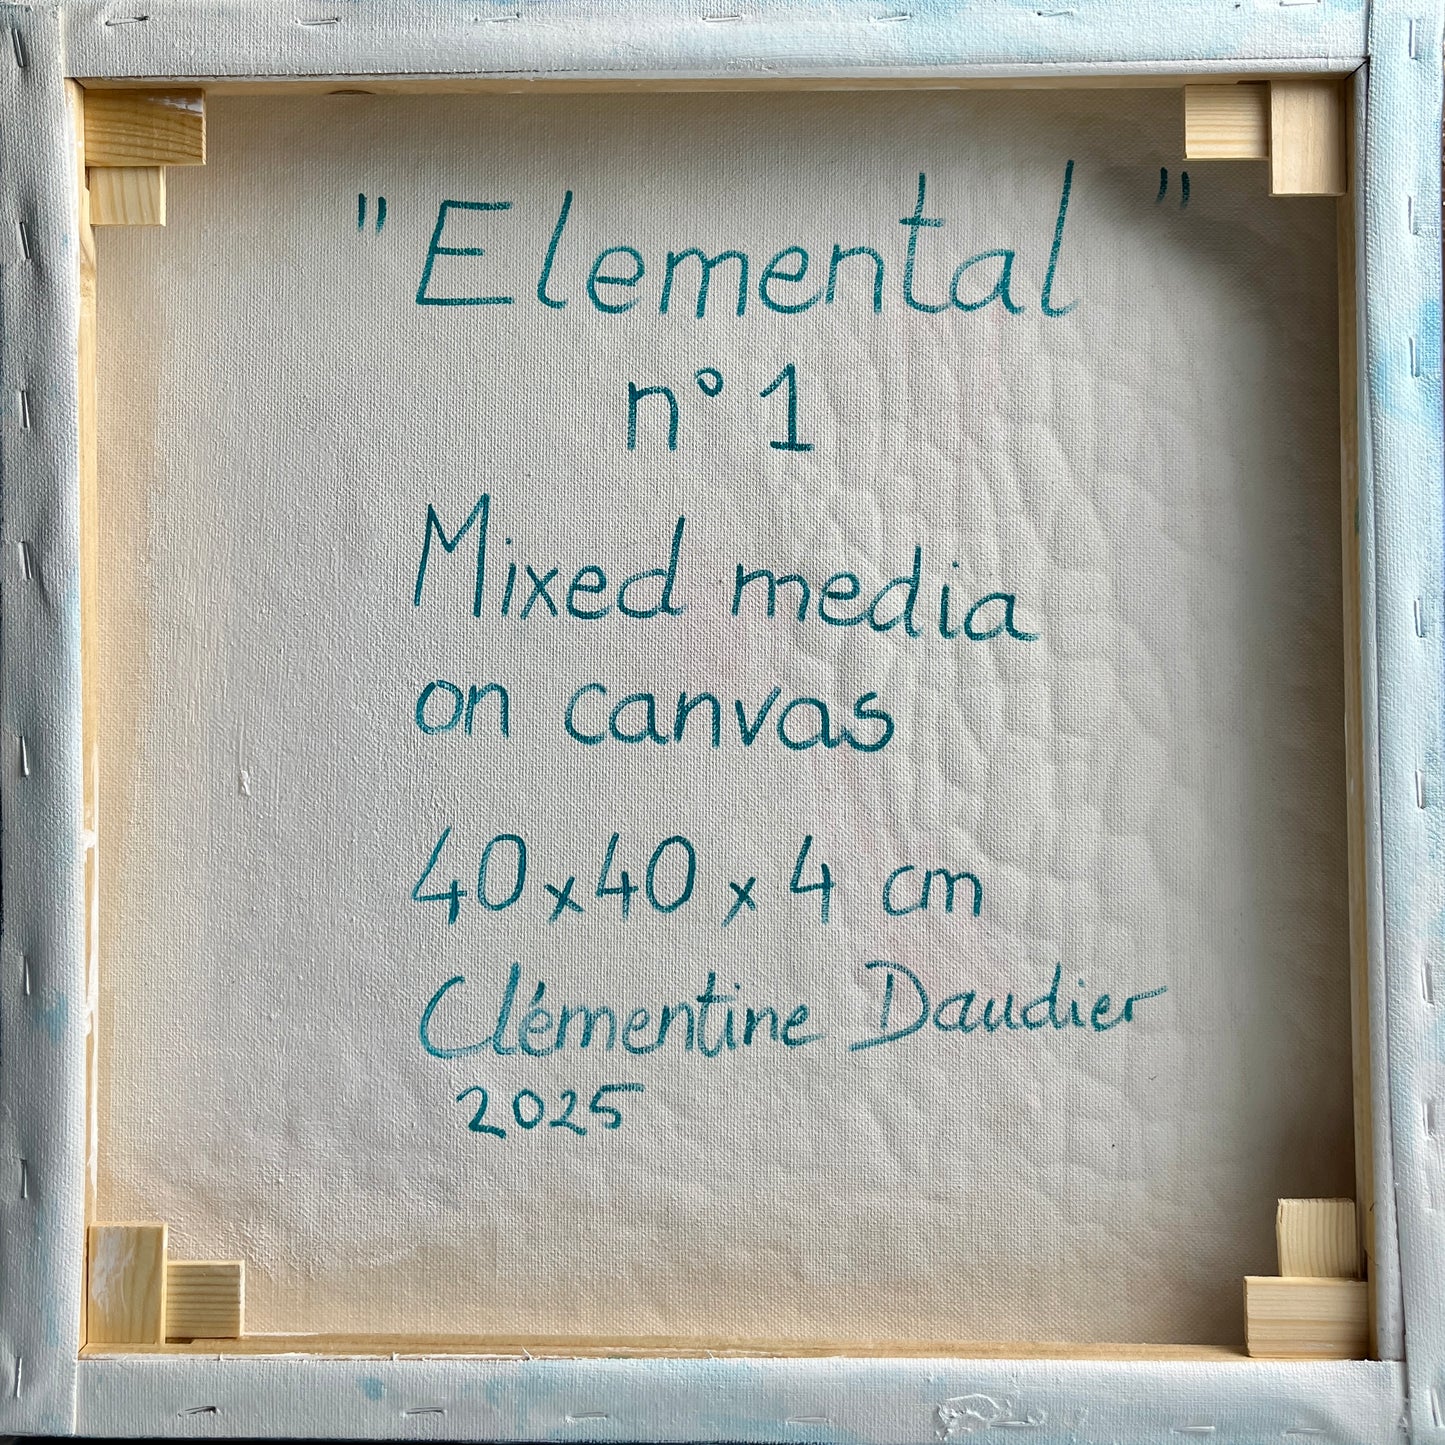 "Elemental"
n° 1
Mixed media
on canvas
40 x 40 x 4 cm
Clémentine Daudier
2025